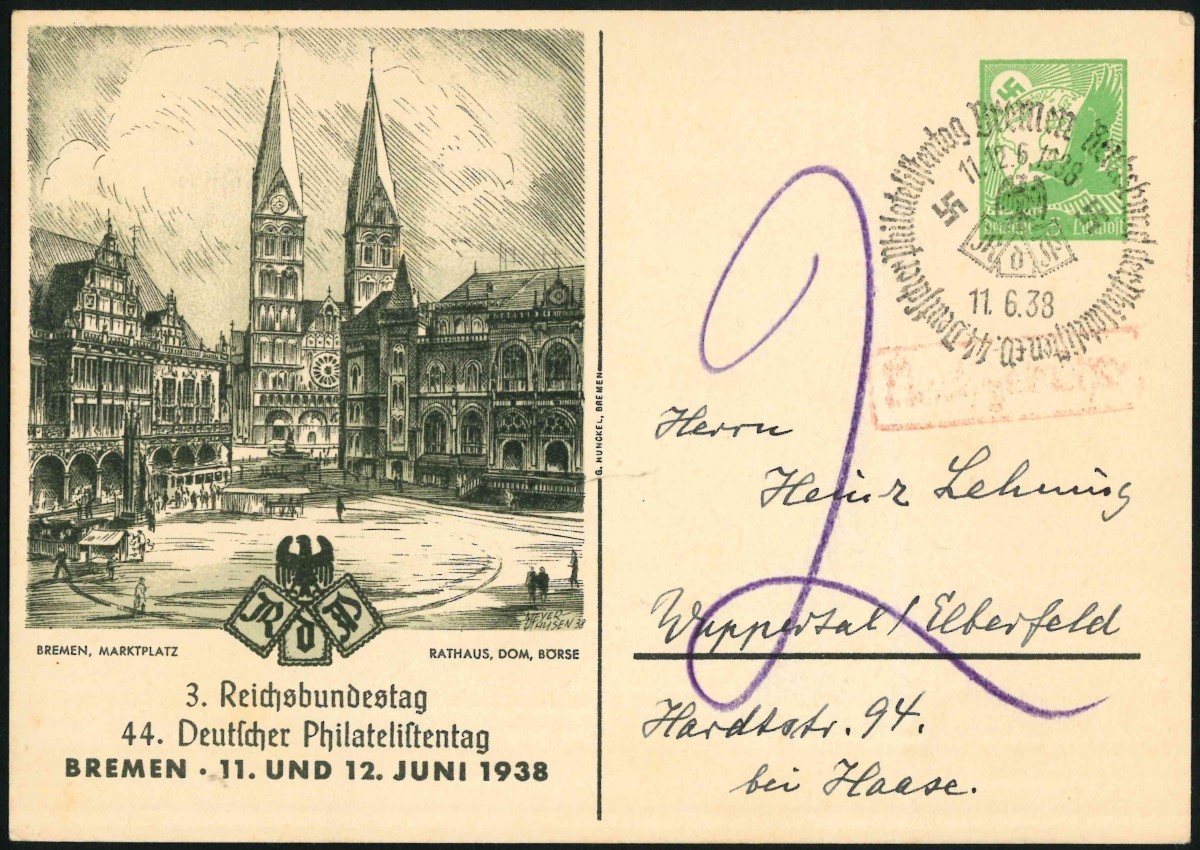 G. HUNCKEL, BREMEN
MEYER-
38
R d P
BREMEN, MARKTPLATZ
RATHAUS, DOM, BÖRSE
3. Reichsbundestag
44. Deutscher Philatelistentag
BREMEN · 11. UND 12. JUNI 1938
44. Deutscher Philatelistentag Bremen Reichsbund der Philatelisten e.V.
11. 12. 6. 1938
R d P
11. 6. 38
Deutsche Luftpost
2
Herrn
Heinz Lehning
Wuppertal / Elberfeld
Hardtstr. 94.
bei Haase.